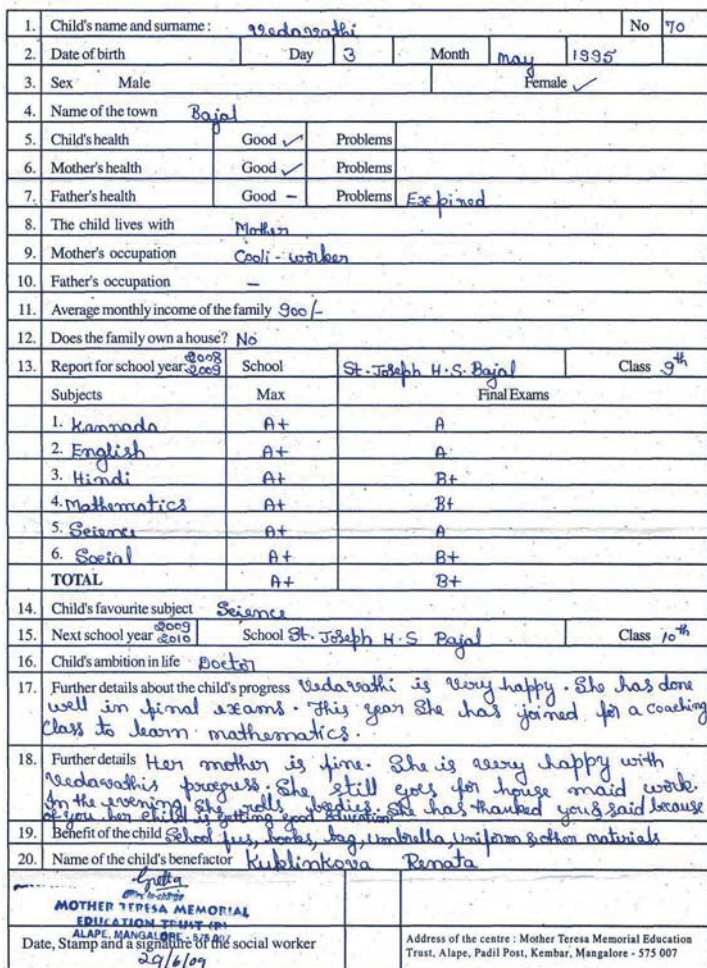 1. Child's name and surname : Vedavathi No 70
2. Date of birth Day 3 Month may 1995
3. Sex Male Female ✓
4. Name of the town Bajal
5. Child's health Good ✓ Problems
6. Mother's health Good ✓ Problems
7. Father's health Good – Problems Expired
8. The child lives with Mother
9. Mother's occupation Cooli - worker
10. Father's occupation –
11. Average monthly income of the family 900/-
12. Does the family own a house? No
13. Report for school year 2008 2009 School St. Joseph H.S. Bajal Class 9th
Subjects Max Final Exams
1. Kannada A+ A
2. English A+ A
3. Hindi A+ B+
4. Mathematics A+ B+
5. Science A+ A
6. Social A+ B+
TOTAL A+ B+
14. Child's favourite subject Science
15. Next school year 2009 2010 School St. Joseph H.S Bajal Class 10th
16. Child's ambition in life Doctor
17. Further details about the child's progress Vedavathi is very happy. She has done
well in final exams. This year She has joined for a coaching
Class to learn mathematics.
18. Further details Her mother is fine. She is very happy with
Vedavathis progress. She still goes for house maid work.
In the evening She rolls beedies. She has thanked you & said because
of you her child is getting good education
19. Benefit of the child School fees, books, bag, Umbrella, Uniform & other materials
20. Name of the child's benefactor Kublinkova Renata
MOTHER TERESA MEMORIAL
EDUCATION TRUST (R)
ALAPE, MANGALORE - 575 007
Date, Stamp and a signature of the social worker
29/6/09
Address of the centre : Mother Teresa Memorial Education
Trust, Alape, Padil Post, Kembar, Mangalore - 575 007